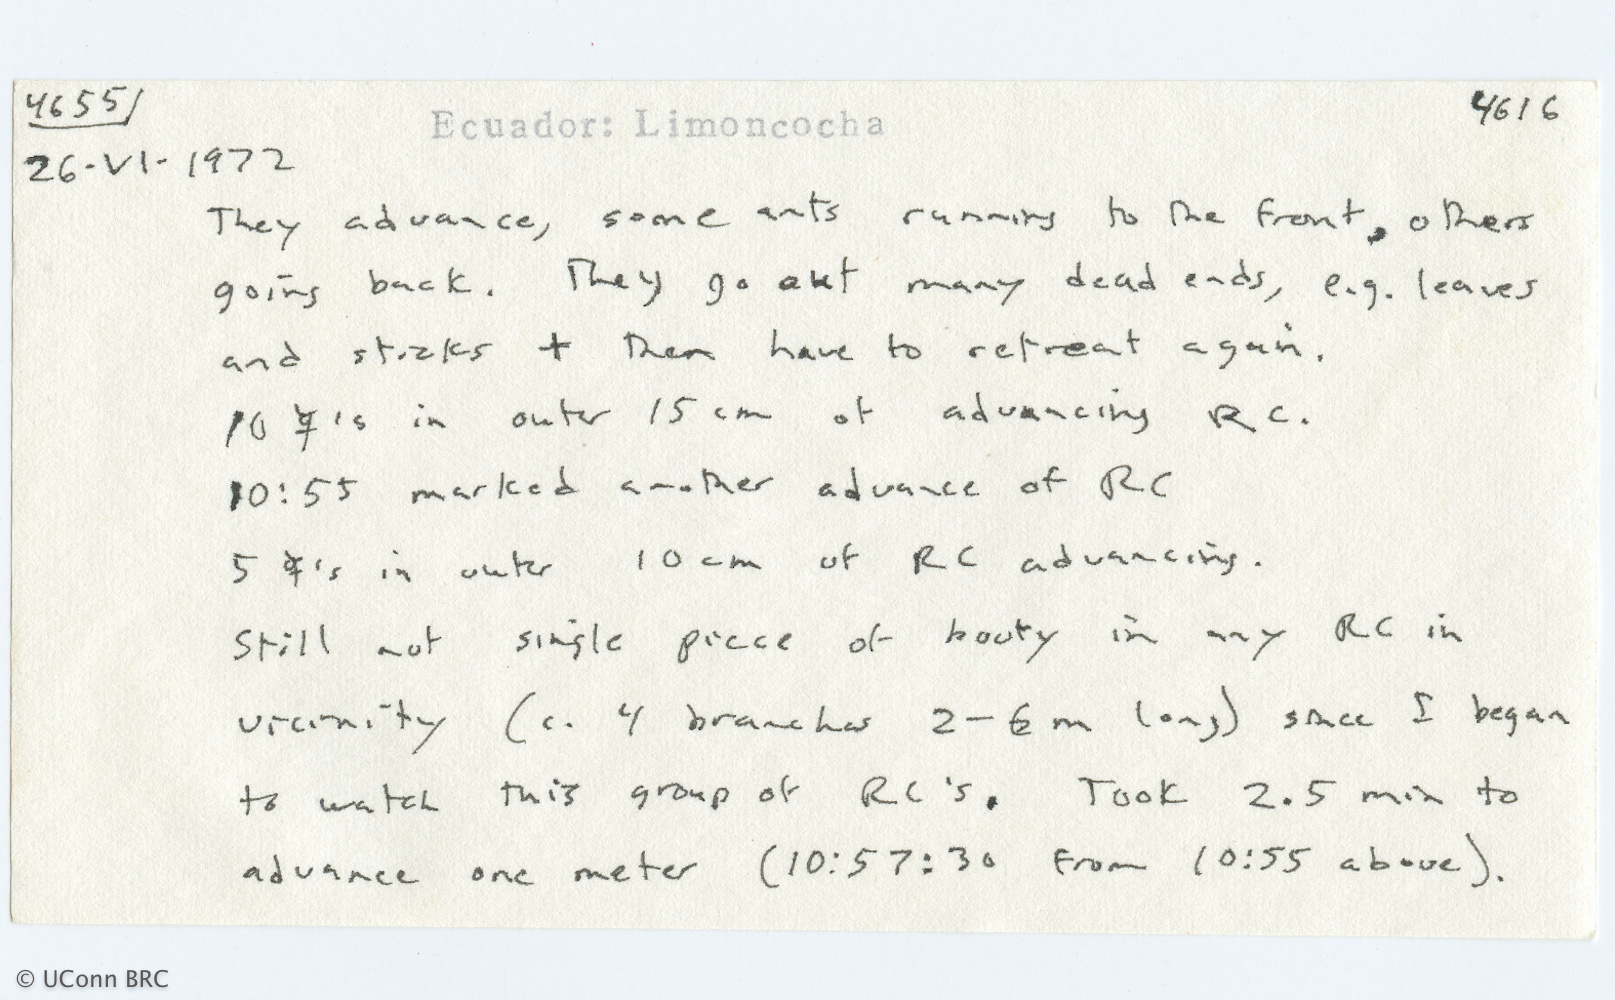 4655/
Ecuador: Limoncocha
4616
26-VI-1972
They advance, some ants running to the front, others
going back. They go out many dead ends, e.g. leaves
and sticks + then have to retreat again.
10 ☿'s in outer 15 cm of advancing RC.
10:55 marked another advance of RC
5 ☿'s in outer 10 cm of RC advancing.
Still not single piece of booty in any RC in
vicinity (c. 4 branches 2-6 m long) since I began
to watch this group of RC's. Took 2.5 min to
advance one meter (10:57:30 from 10:55 above).
© UConn BRC